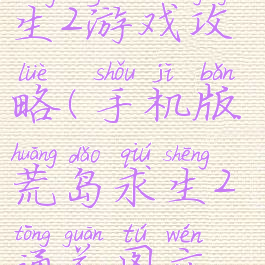 生2游戏攻
lüè shǒu jī bǎn
略(手机版
huāng dǎo qiú shēng
荒岛求生2
tōng guān tú wén
通关图文